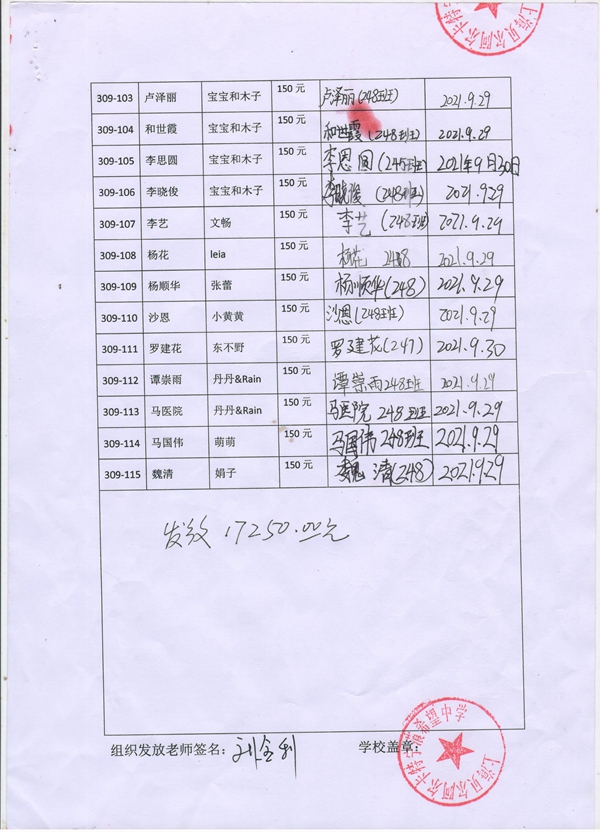 上海贝尔阿尔卡特
309-103 卢泽丽 宝宝和木子 150元 卢泽丽(248班) 2021.9.29
309-104 和世霞 宝宝和木子 150元 和世霞(248班) 2021.9.29
309-105 李思圆 宝宝和木子 150元 李恩圆(245班) 2021年9月30日
309-106 李晓俊 宝宝和木子 150元 李晓俊(248班) 2021.929
309-107 李艺 文畅 150元 李艺(248班) 2021.9.29
309-108 杨花 leia 150元 杨花 248 2021.9.29
309-109 杨顺华 张蕾 150元 杨顺华(248) 2021.9.29
309-110 沙恩 小黄黄 150元 沙恩(248班) 2021.9.29
309-111 罗建花 东不野 150元 罗建花(247) 2021.9.30
309-112 谭崇雨 丹丹&Rain 150元 谭崇雨248班 2021.9.29
309-113 马医院 丹丹&Rain 150元 马医院 248班 2021.9.29
309-114 马国伟 萌萌 150元 马国伟 248班 2021.9.29
309-115 魏清 娟子 150元 魏清(248) 2021.9.29
发放 17250.00元
组织发放老师签名: 学校盖章:
上海贝尔阿尔卡特宁浪希望中学